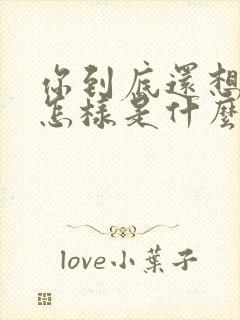 你到底還想
怎樣是什麼
love小葉子